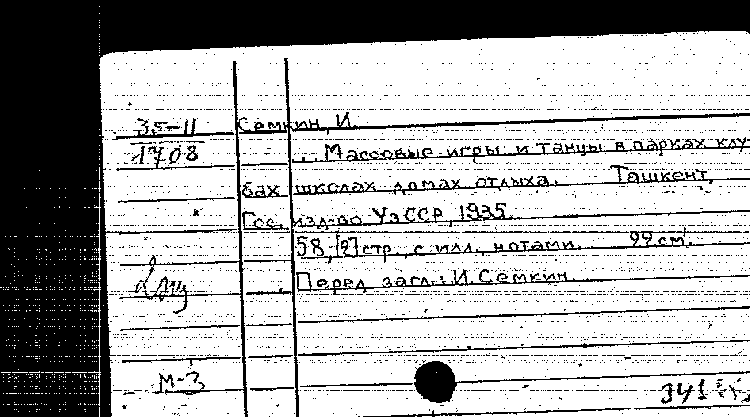 35-11
1708
Семкин, И.
... Массовые игры и танцы в парках клу-
бах школах домах отдыха. Ташкент,
Гос. изд-во УзССР, 1935.
58, [2] стр. с илл., нотами. 22 см.
Перед загл.: И. Семкин
М-3
341